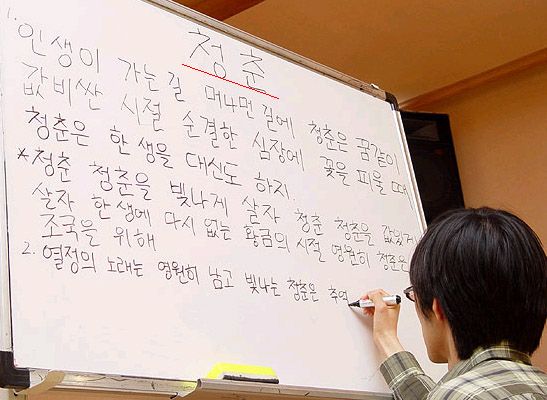 청춘
1. 인생이 가는길 머나먼 길에 청춘은 꿈같이
값비싼 시절 순결한 심장에 꽃을 피울 때
청춘은 한생을 대신도 하지.
*청춘 청춘을 빛나게 살자 청춘 청춘을 값있게
살자 한생에 다시 없는 황금의 시절 영원히 청춘은
조국을 위해
2. 열정의 노래는 영원히 남고 빛나는 청춘은 추억